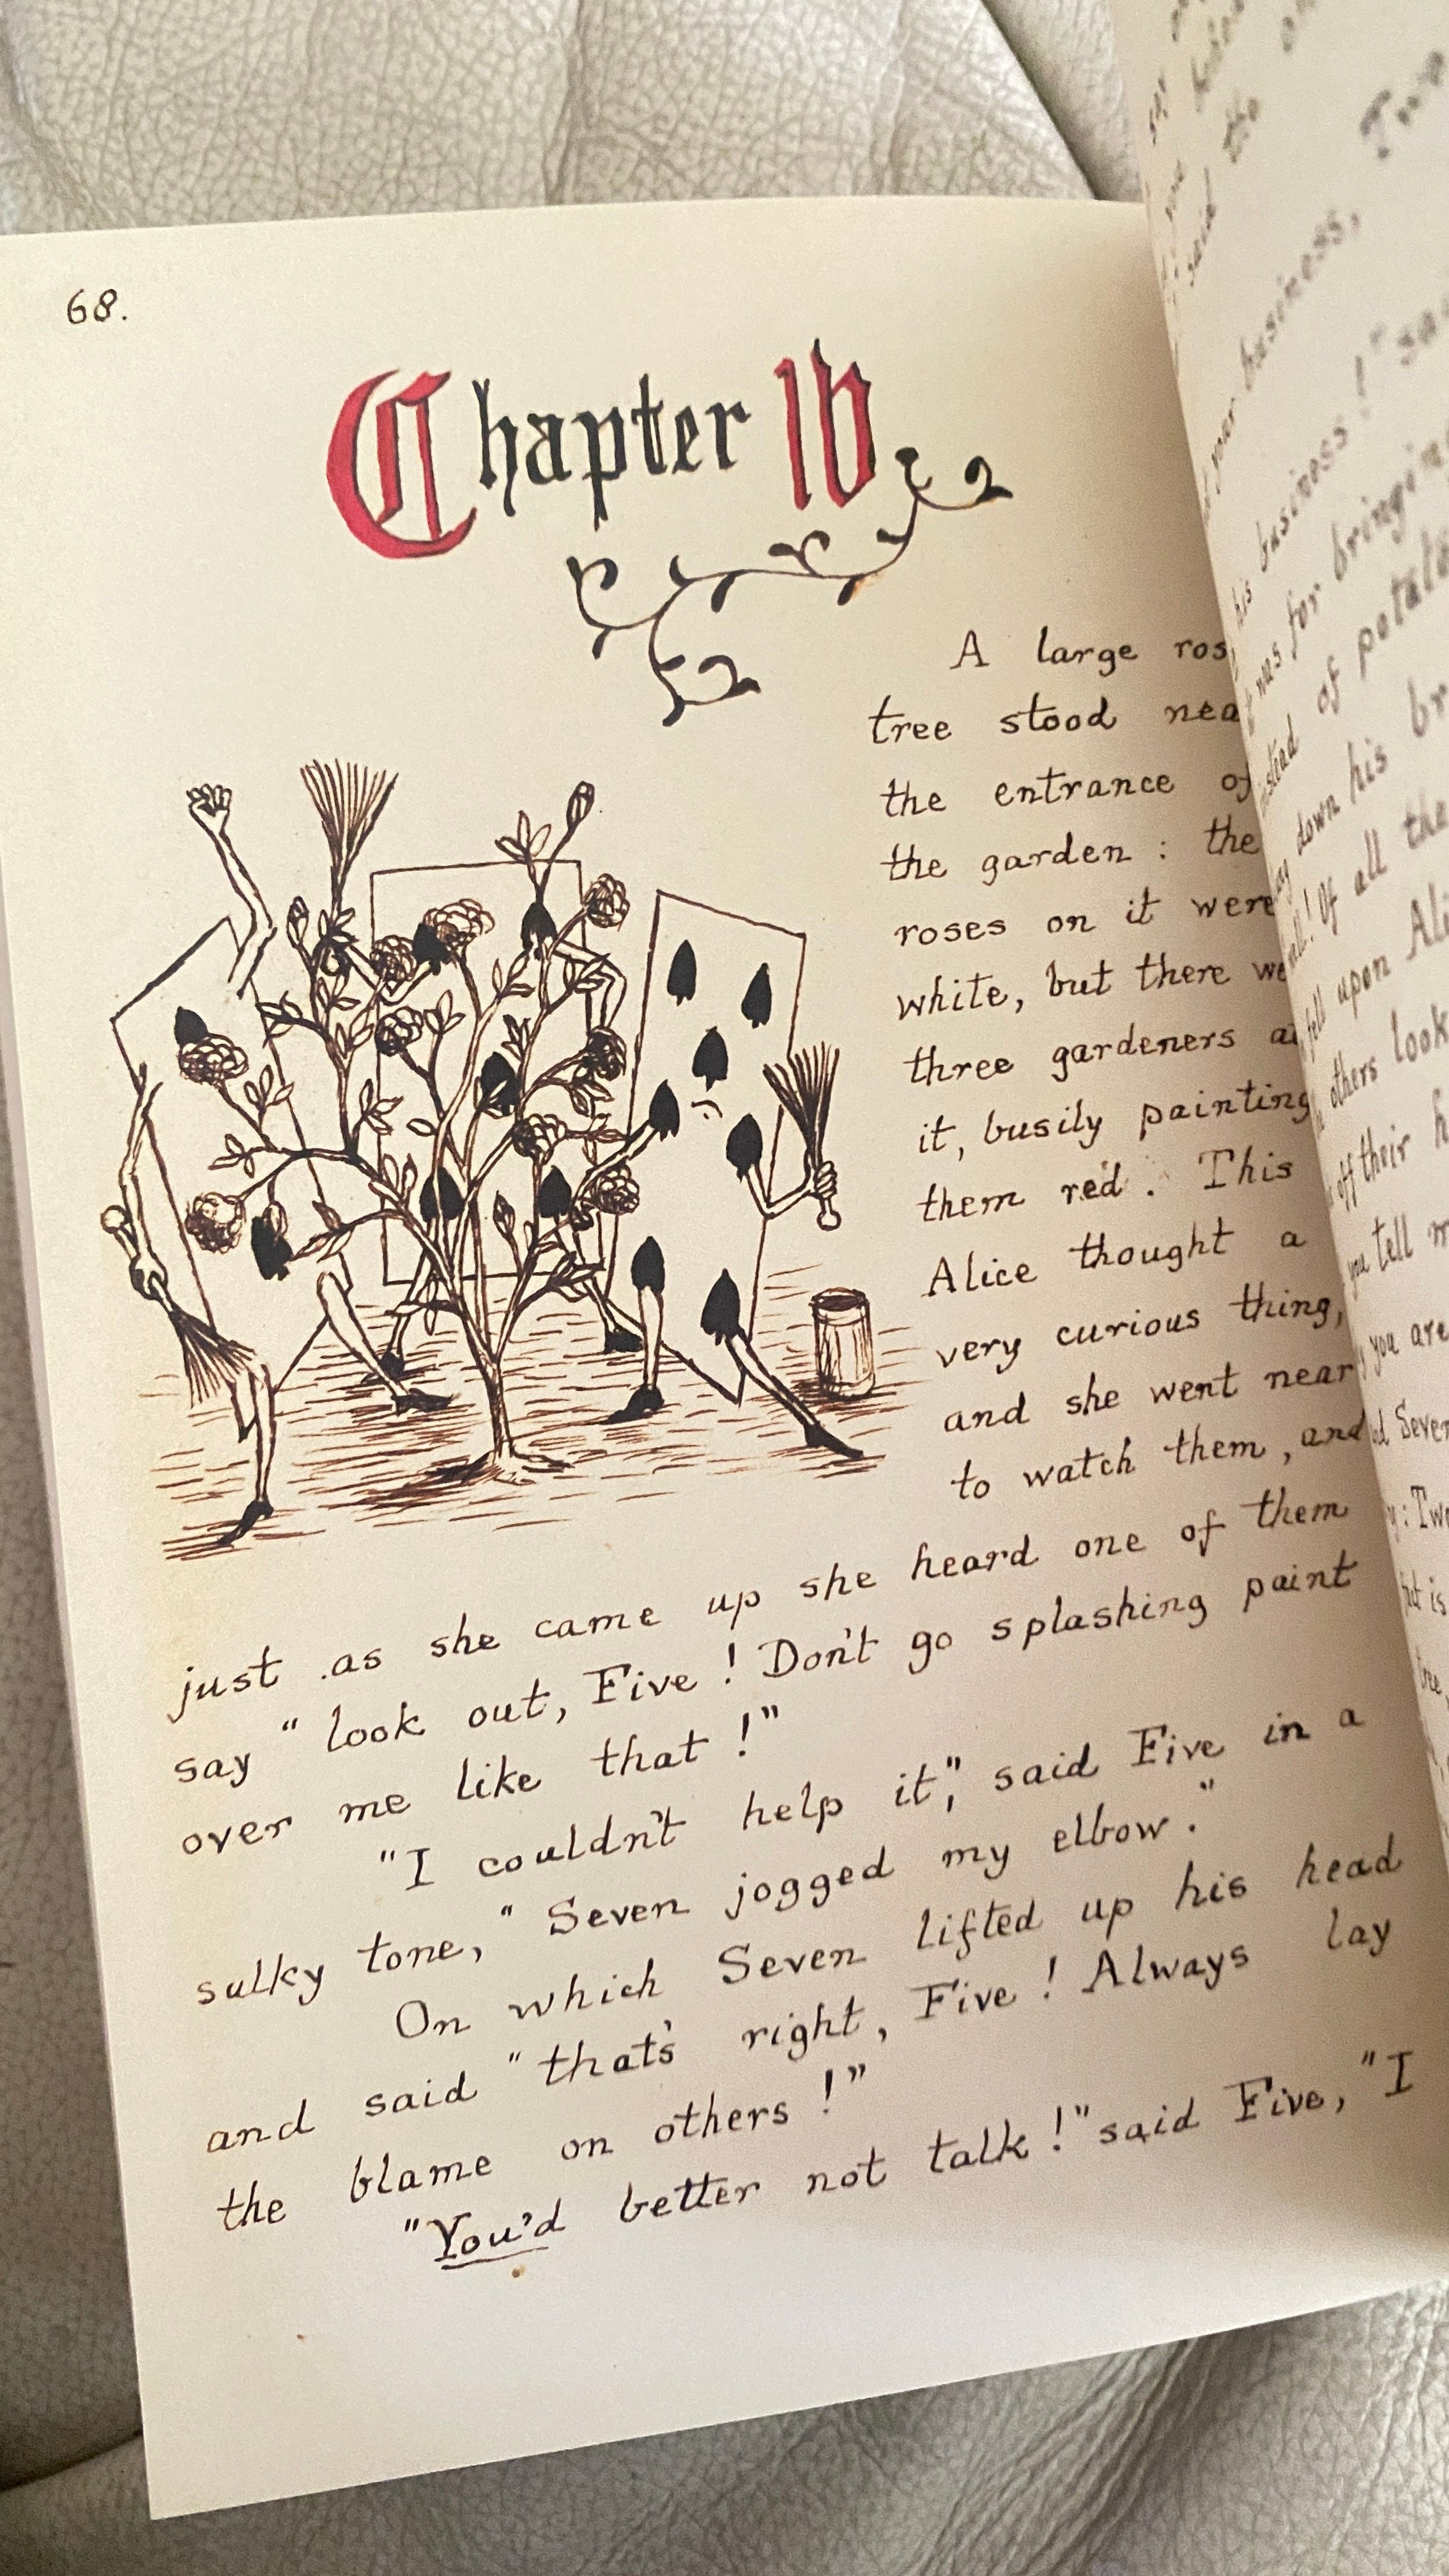 68.
Chapter IV
A large ros
tree stood nea
the entrance of
the garden : the
roses on it were
white, but there we
three gardeners a
it, busily painting
them red. This
Alice thought a
very curious thing,
and she went near
to watch them, and
just as she came up she heard one of them
say "look out, Five! Don't go splashing paint
over me like that!"
"I couldn't help it", said Five in a
sulky tone, "Seven jogged my elbow."
On which Seven lifted up his head
and said "that's right, Five! Always lay
the blame on others!"
"You'd better not talk!" said Five, "I
said the
business,
his business!"
was for bringing
of potato
down his br
all! Of all the
fell upon Ali
others look
off their h
you tell m
you are
Seven